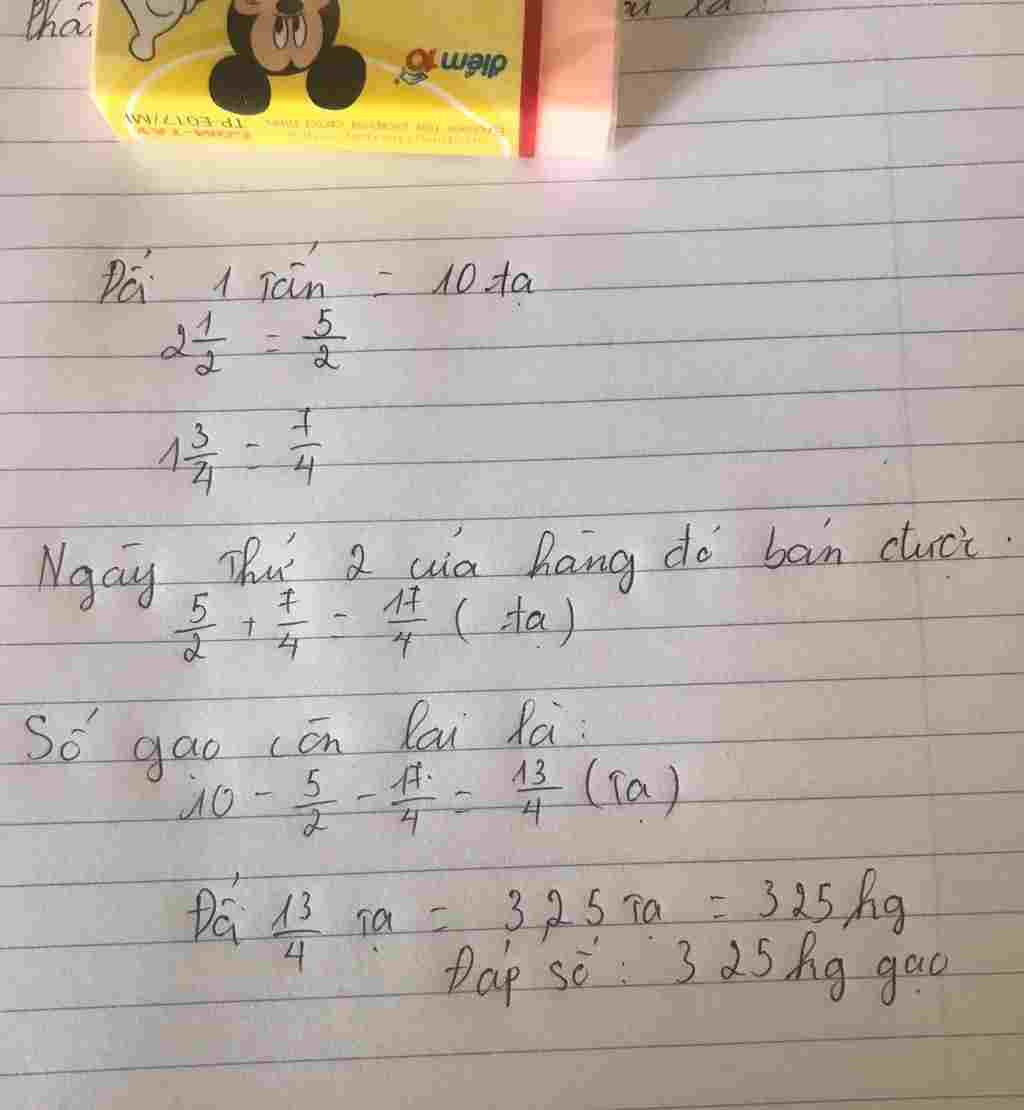 điểm 10
TP-E017/MI
Đổi 1 tấn = 10 tạ
2 1/2 = 5/2
1 3/4 = 7/4
Ngày thứ 2 cửa hàng đó bán được:
5/2 + 7/4 = 17/4 (tạ)
Số gạo còn lại là:
10 - 5/2 - 17/4 = 13/4 (tạ)
Đổi 13/4 tạ = 3,25 tạ = 325 kg
Đáp số: 325 kg gạo